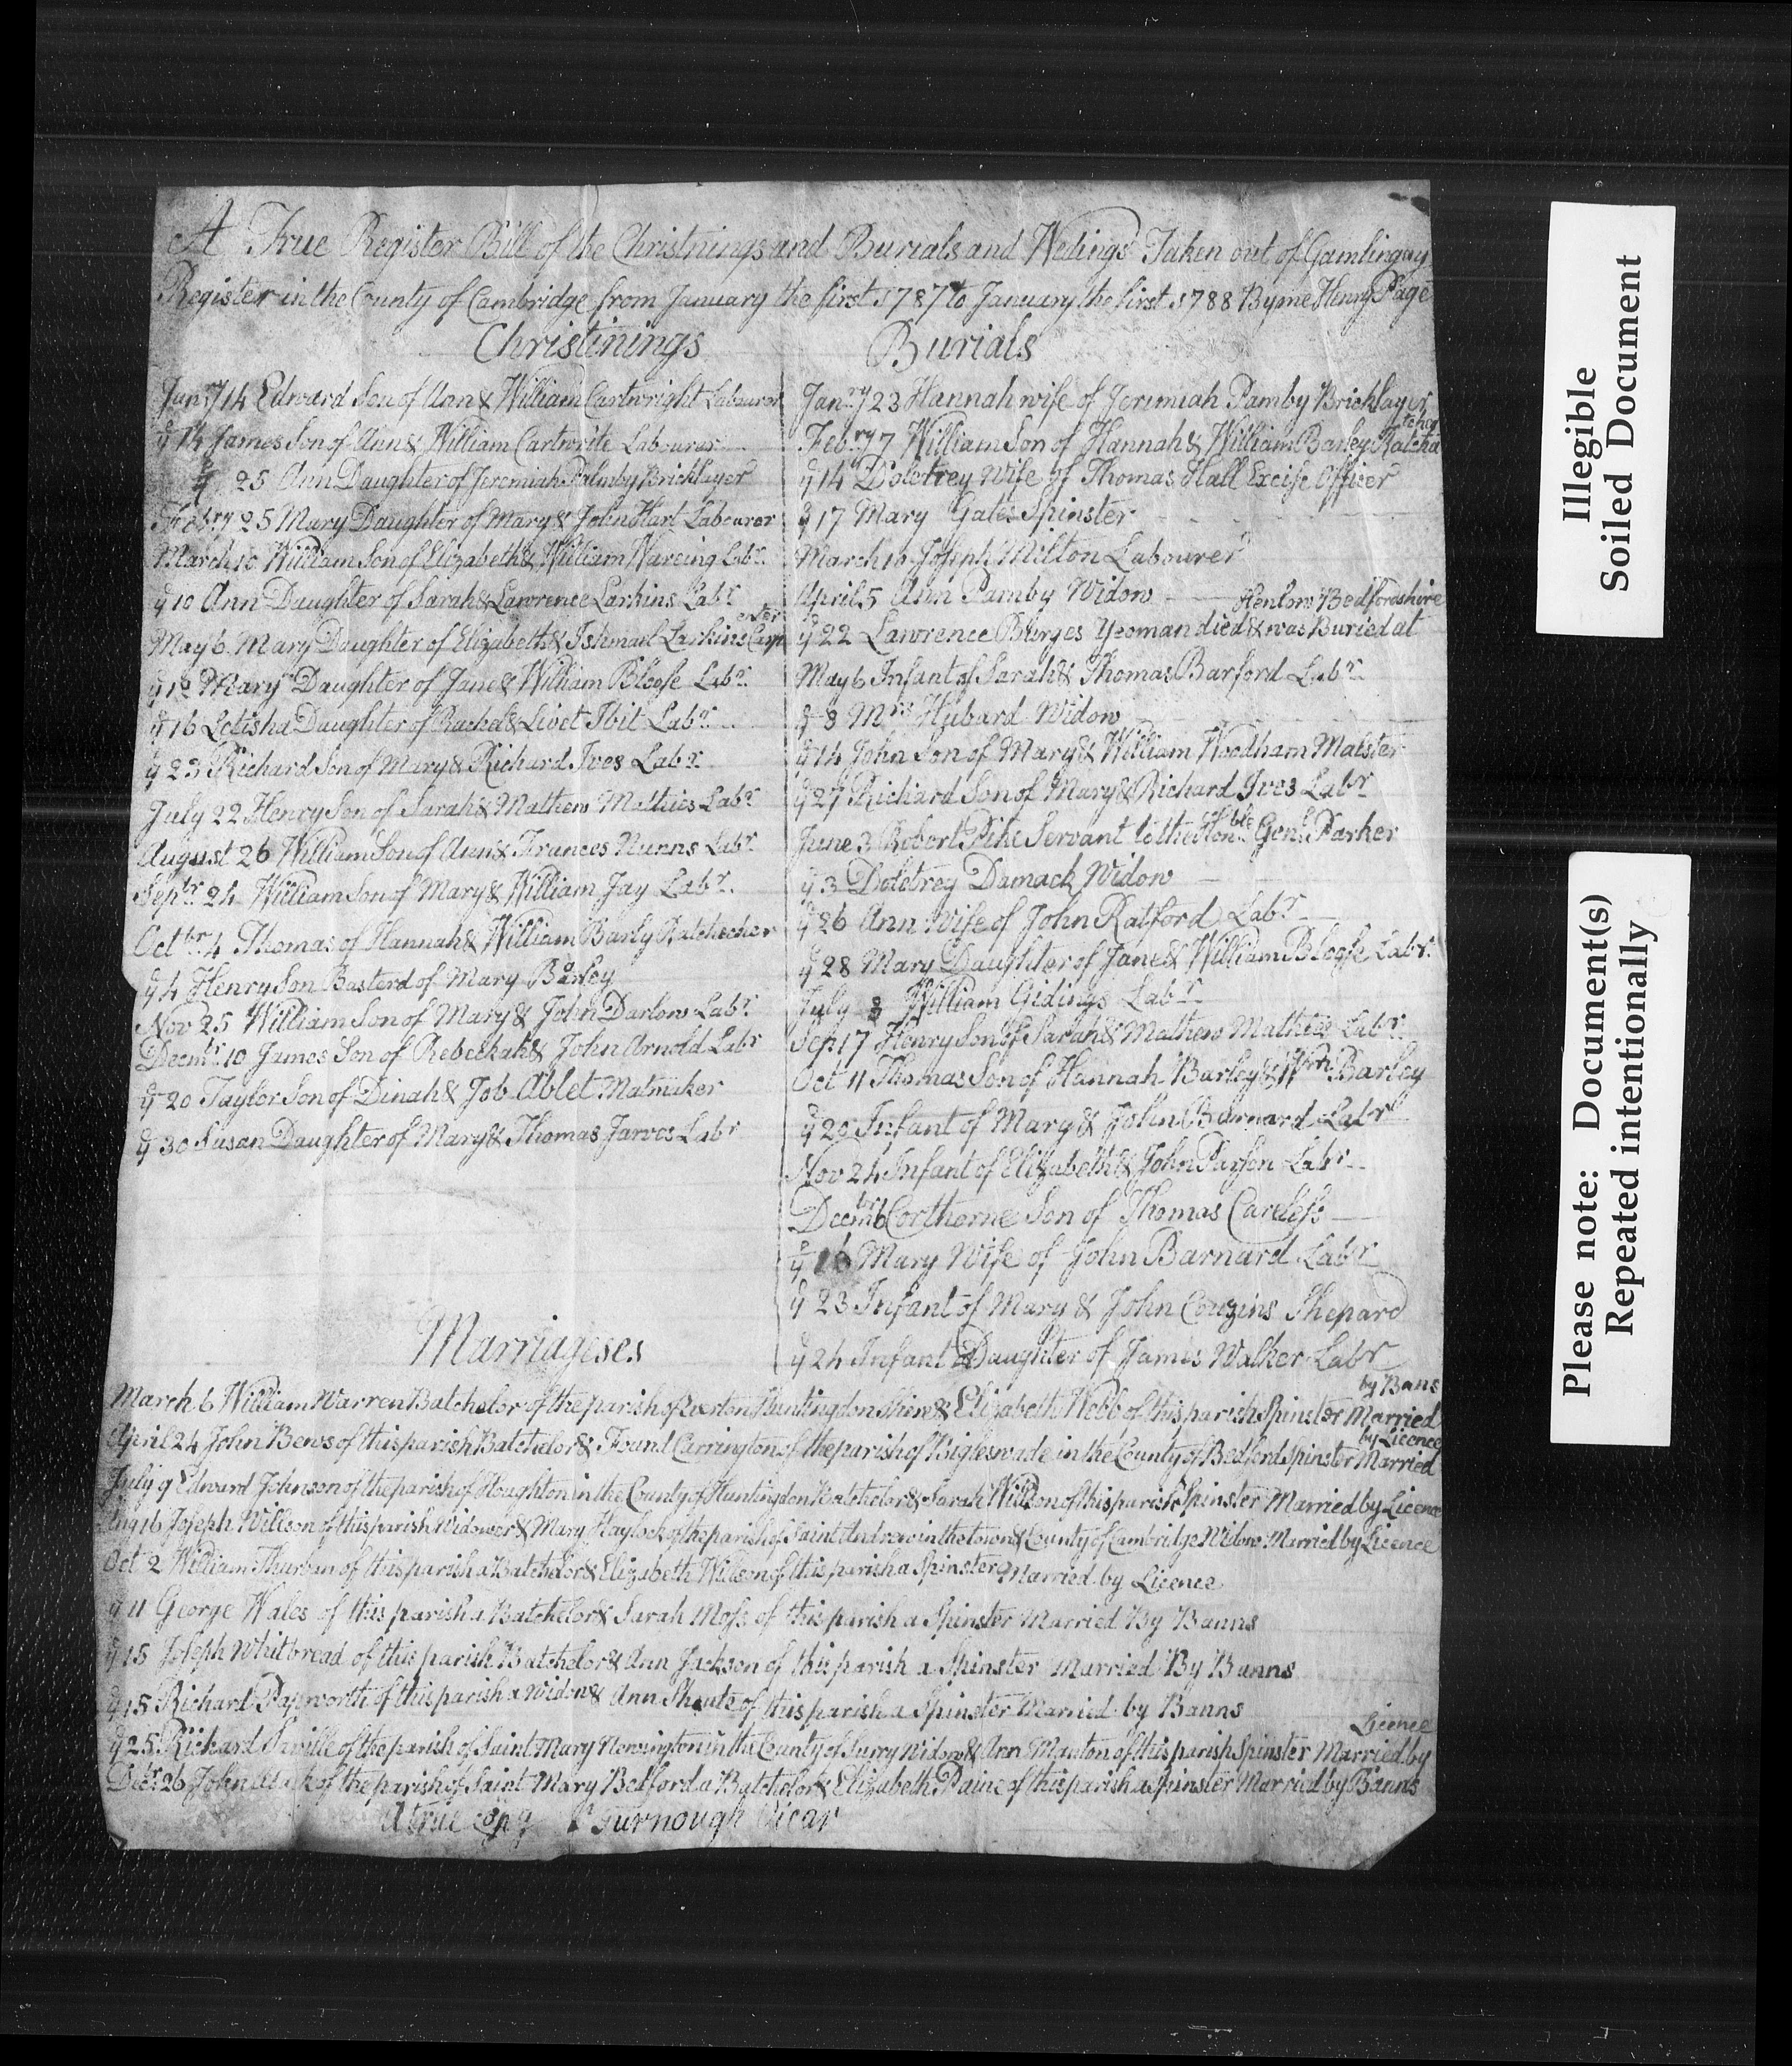 A True Register Bill of the Christnings and Burials and Wedings Taken out of Gamlingay
Register in the County of Cambridge from January the first 1787 to January the first 1788 By me Henry Page
Christinings
Janry 14 Edward Son of Ann & William Cartwright Labourer
ye 14 James Son of Ann & William Cartwrite Labourer
ye 25 Ann Daughter of Jeremiah Palmby Bricklayer
Febry 25 Mary Daughter of Mary & John Hart Labourer
March 10 William Son of Elizabeth & William Wareing Labr
ye 10 Ann Daughter of Sarah & Lawrence Larkins Labr
May 6 Mary Daughter of Elizabeth & Ishmael Larkins Carpenter
ye 13 Mary Daughter of Jane & William Blogse Labr
ye 16 Letisha Daughter of Rachel & Livet Ibit Labr
ye 23 Richard Son of Mary & Richard Ives Labr
July 22 Henry Son of Sarah & Mathew Mathies Labr
August 26 William Son of Ann & Frances Nunns Labr
Septbr 24 William Son of Mary & William Jay Labr
Octbr 4 Thomas of Hannah & William Barly Ratchecher
ye 4 Henry Son Basterd of Mary Barley
Nov 25 William Son of Mary & John Darlow Labr
Decmbr 10 James Son of Rebeckah & John Arnold Labr
ye 20 Taylor Son of Dinah & Job Ablet Matmaker
ye 30 Susan Daughter of Mary & Thomas Jarves Labr
Burials
Janry 23 Hannah wife of Jerimiah Pamby Bricklayer
Febry 7 William Son of Hannah & William Barley
ye 14 Doletrey Wife of Thomas Hall Excise Officer
ye 17 Mary Gates Spinster
March 10 Joseph Milton Labourer
April 5 Ann Pamby Widow
Henlow Bedfordshire
ye 22 Lawrence Burges Yeoman died & was Buried at
May 6 Infant of Sarah & Thomas Barford Labr
ye 8 Mrs Hubard Widow
ye 14 John Son of Mary & William Woodham Malster
ye 27 Richard Son of Mary & Richard Ives Labr
June 3 Robert Pike Servant to the Honble Genl Parker
ye 3 Doletrey Damack Widow
ye 26 Ann Wife of John Ratford Labr
ye 28 Mary Daughter of Jane & William Blogse Labr
July 8 William Gidings Labr
Sep 17 Henry Son of Sarah & Mathew Mathies Labr
Oct 11 Thomas Son of Hannah Barley & Wm Barley
ye 20 Infant of Mary & John Barnard Labr
Nov 24 Infant of Elizabeth & John Parson Labr
Decmbr 6 Corthorne Son of Thomas Careless
ye 16 Mary Wife of John Barnard Labr
ye 23 Infant of Mary & John Couzins Shepard
ye 24 Infant Daughter of James Walker Labr
Marriageses
by Bans
March 6 William Warren Batchelor of the parish of Everton Huntingdon Shire & Elizabeth Webb of this parish Spinster Married
by Licence
April 24 John Bews of this parish Batchelor & Found Carrington of the parish of Bigleswade in the County of Bedford Spinster Married
July 9 Edward Johnson of the parish of Houghton in the County of Huntingdon Batchelor & Sarah Willson of this parish Spinster Married by Licence
Aug 16 Joseph Willson of this parish Widower & Mary Haylock of the parish of Saint Andrew in the town & County of Cambridge Widow Married by Licence
Oct 2 William Thurban of this parish a Batchelor & Elizabeth Willson of this parish a Spinster Married by Licence
ye 11 George Wales of this parish a Batchelor & Sarah Moss of this parish a Spinster Married By Banns
ye 15 Joseph Whitbread of this parish Batchelor & Ann Jackson of this parish a Spinster Married By Banns
ye 15 Richard Papworth of this parish a Widow & Ann Shute of this parish a Spinster Married by Banns
Licence
ye 25 Richard Saville of the parish of Saint Mary Newington in the County of Surry Widow & Ann Manton of this parish Spinster Married by
Decbr 26 John Mack of the parish of Saint Mary Bedford a Batchelor & Elizabeth Paine of this parish a Spinster Married by Banns
A true Copy Gurnough Vicar
Illegible
Soiled Document
Please note: Document(s)
Repeated intentionally